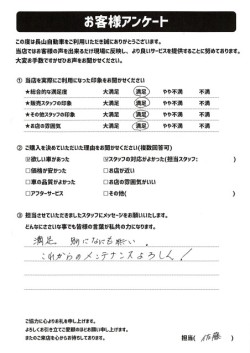 お客様アンケート
この度は長山自動車をご利用いただき誠にありがとうございます。
当店ではお客様の声を出来るだけ現場に反映し、より良いサービスを提供することに努めております。
大変お手数ですがぜひお声をお聞かせください。
① 当店を実際にご利用になった印象をお聞かせください
★総合的な満足度 大満足 満足 やや不満 不満
★販売スタッフの印象 大満足 満足 やや不満 不満
★その他スタッフの印象 大満足 満足 やや不満 不満
★お店の雰囲気 大満足 満足 やや不満 不満
② ご購入を決めていただいた理由をお聞かせください(複数回答可)
☑欲しい車があった ☑スタッフの対応がよかった(担当スタッフ: )
□価格が安かった □お店が近い
□車の品質がよかった □お店の雰囲気がいい
□アフターサービス □その他( )
③ 担当させていただきましたスタッフにメッセージをお願いいたします。
どんなにささいな事でも皆様の言葉が私共の力になります。
満足 別になにも無い。
これからのメンテナンスよろしく!
ご協力に心よりお礼を申し上げます。
よろしくお引き立てご愛顧のほどお願い申し上げます。
またのご来店を心からお待ちしております。
担当( 佐藤 )